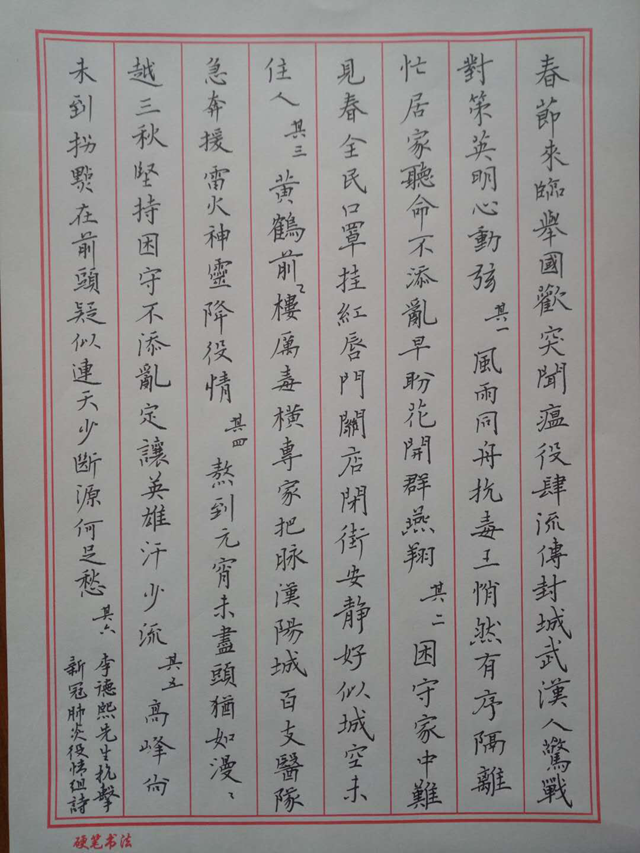 春節來臨舉國歡突聞瘟役肆流傳封城武漢人驚戰
對策英明心動弦其一風雨同舟抗毒王悄然有序隔離
忙居家聽命不添亂早盼花開群燕翔其二困守家中難
見春全民口罩挂紅唇門關店閉街安靜好似城空未
住人其三黃鶴前〻樓厲毒橫專家把脉漢陽城百支醫隊
急奔援雷火神靈降役情其四熬到元宵未盡頭猶如漫〻
越三秋堅持困守不添亂定讓英雄汗少流其五高峰尚
未到拐點在前頭疑似連天少斷源何足愁其六
李德熙先生抗擊
新冠肺炎役情組詩
硬笔书法